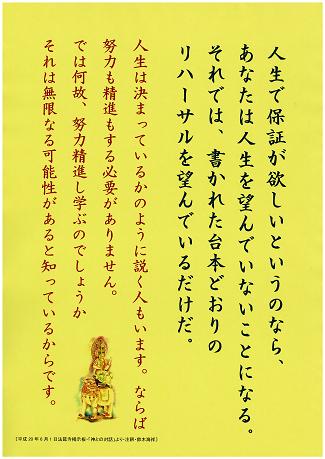 人生で保証が欲しいというのなら、
あなたは人生を望んでいないことになる。
それでは、書かれた台本どおりの
リハーサルを望んでいるだけだ。
人生は決まっているかのように説く人もいます。ならば
努力も精進もする必要がありません。
では何故、努力精進し学ぶのでしょうか
それは無限なる可能性があると知っているからです。